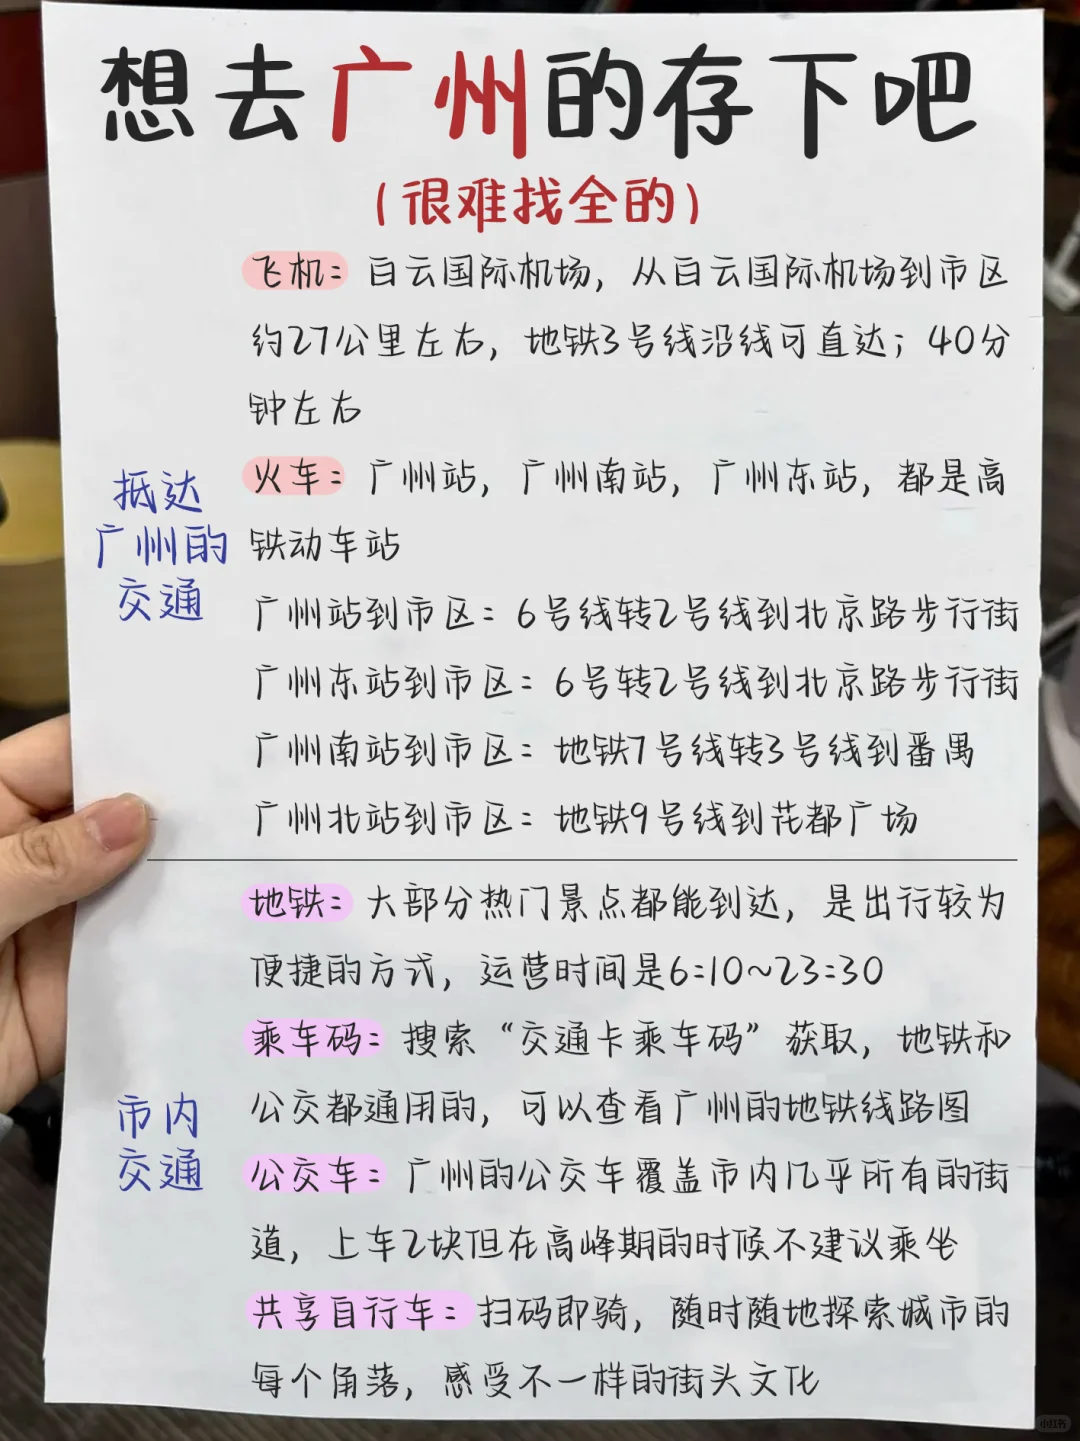 想去广州的存下吧
（很难找全的）
抵达
广州的
交通
飞机：白云国际机场，从白云国际机场到市区
约27公里左右，地铁3号线沿线可直达；40分
钟左右
火车：广州站，广州南站，广州东站，都是高
铁动车站
广州站到市区：6号线转2号线到北京路步行街
广州东站到市区：6号转2号线到北京路步行街
广州南站到市区：地铁7号线转3号线到番禺
广州北站到市区：地铁9号线到花都广场
市内
交通
地铁：大部分热门景点都能到达，是出行较为
便捷的方式，运营时间是6:10~23:30
乘车码：搜索“交通卡乘车码”获取，地铁和
公交都通用的，可以查看广州的地铁线路图
公交车：广州的公交车覆盖市内几乎所有的街
道，上车2块但在高峰期的时候不建议乘坐
共享自行车：扫码即骑，随时随地探索城市的
每个角落，感受不一样的街头文化
小红书